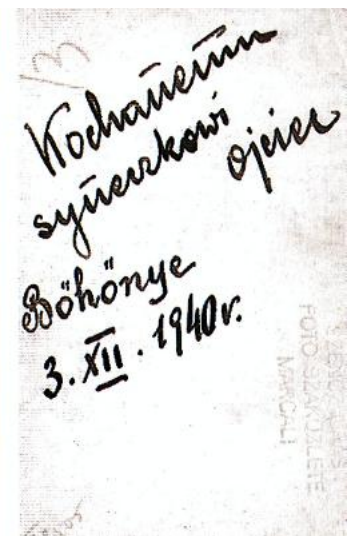 13
Kochanemu
syneczkowi
ojciec
Böhönye
3. XII. 1940r.
FOTO SZAKÜZLETE
MARCALI